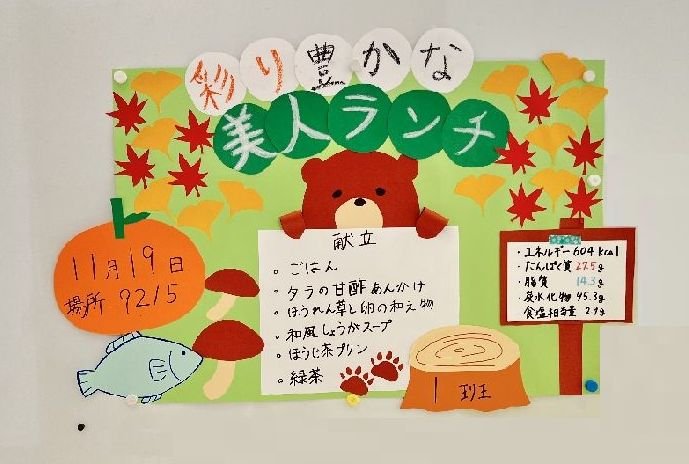 彩り豊かな
美人ランチ
11月19日
場所 9215
献立
・ごはん
・タラの甘酢あんかけ
・ほうれん草と卵の和え物
・和風しょうがスープ
・ほうじ茶プリン
・緑茶
・エネルギー 604 kcal
・たんぱく質 27.5g
・脂質 14.3g
・炭水化物 95.3g
・食塩相当量 2.9g
1班